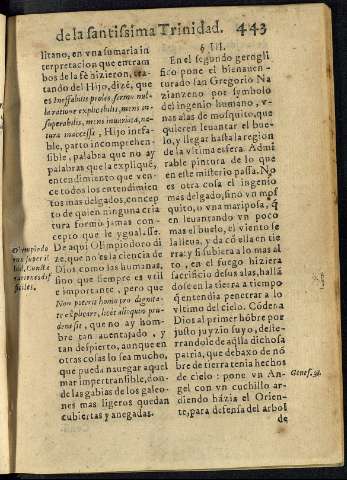 de la santissima Trinidad. 443
litano, en vna sumaria in
terpretacion que entram
bos de la fè hizieron, tra-
tando del Hijo, dize, que
es Ineffabilis proles, sermo nul-
la ratione explicabilis, mens in
superabilis, mens inuenta, na-
tura inaccessa, Hijo inefa-
ble, parto incomprehen-
sible, palabra que no ay
palabras que la explique,
entendimiento que ven-
ce todos los entendimien
tos mas delgados, concep
to de quien ninguna cria
tura formò jamas con-
cepto que le yguale.
De aqui Olimpiodoro di
ze, que no es la ciencia de
Dios como las humanas,
sino que siempre es vtil
e importante, pero que
Non poteris homo pro dignita-
te explicare, licet alioquin pru-
dens sit, que no ay hom-
bre tan auentajado, y
tan despierto, aunque en
otras cosas lo sea mucho,
que pueda nauegar aquel
mar impertransible, don-
de las gabias de los galeo-
nes mas ligeros quedan
cubiertas y anegadas.
Olimpiodo
rus super il
lud, Cuncta
res difficiles,
§ III.
En el segundo gerogli
fico pone el bienauen-
turado san Gregorio Na
zianzeno por symbolo
del ingenio humano, v-
nas alas de mosquito, que
quieren leuantar el bue-
lo, y llegar hasta la region
de la vltima esfera. Admi
rable pintura de lo que
en este misterio passa. No
es otra cosa el ingenio
mas delgado, sino vn mos
quito, o vna mariposa, q̃
en leuantando vn poco
mas el buelo, el viento se
la lleua, y da cõ ella en tie
rra; y si subiera a lo mas al
to, en el fuego hiziera
sacrificio de sus alas, hallã
dose en la tierra a tiempo
q̃ entendia penetrar a lo
vltimo del cielo. Cõdena
Dios al primer hõbre por
justo juyzio suyo, deste-
rrandole de aq̃lla dichosa
patria, que debaxo de nõ
bre de tierra tenia hechos
de cielo: pone vn An-
gel con vn cuchillo ar-
diendo hàzia el Orien-
te, para defensa del arbol
Genes. 3.
de